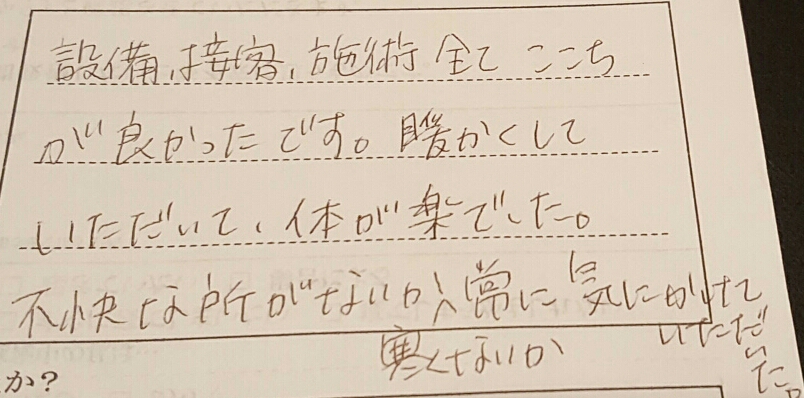 設備、接客、施術 全て ここち
が良かったです。暖かくして
いただいて、体が楽でした。
不快な所がないか、常に気にかけて
いただいた。
寒くないか
か?